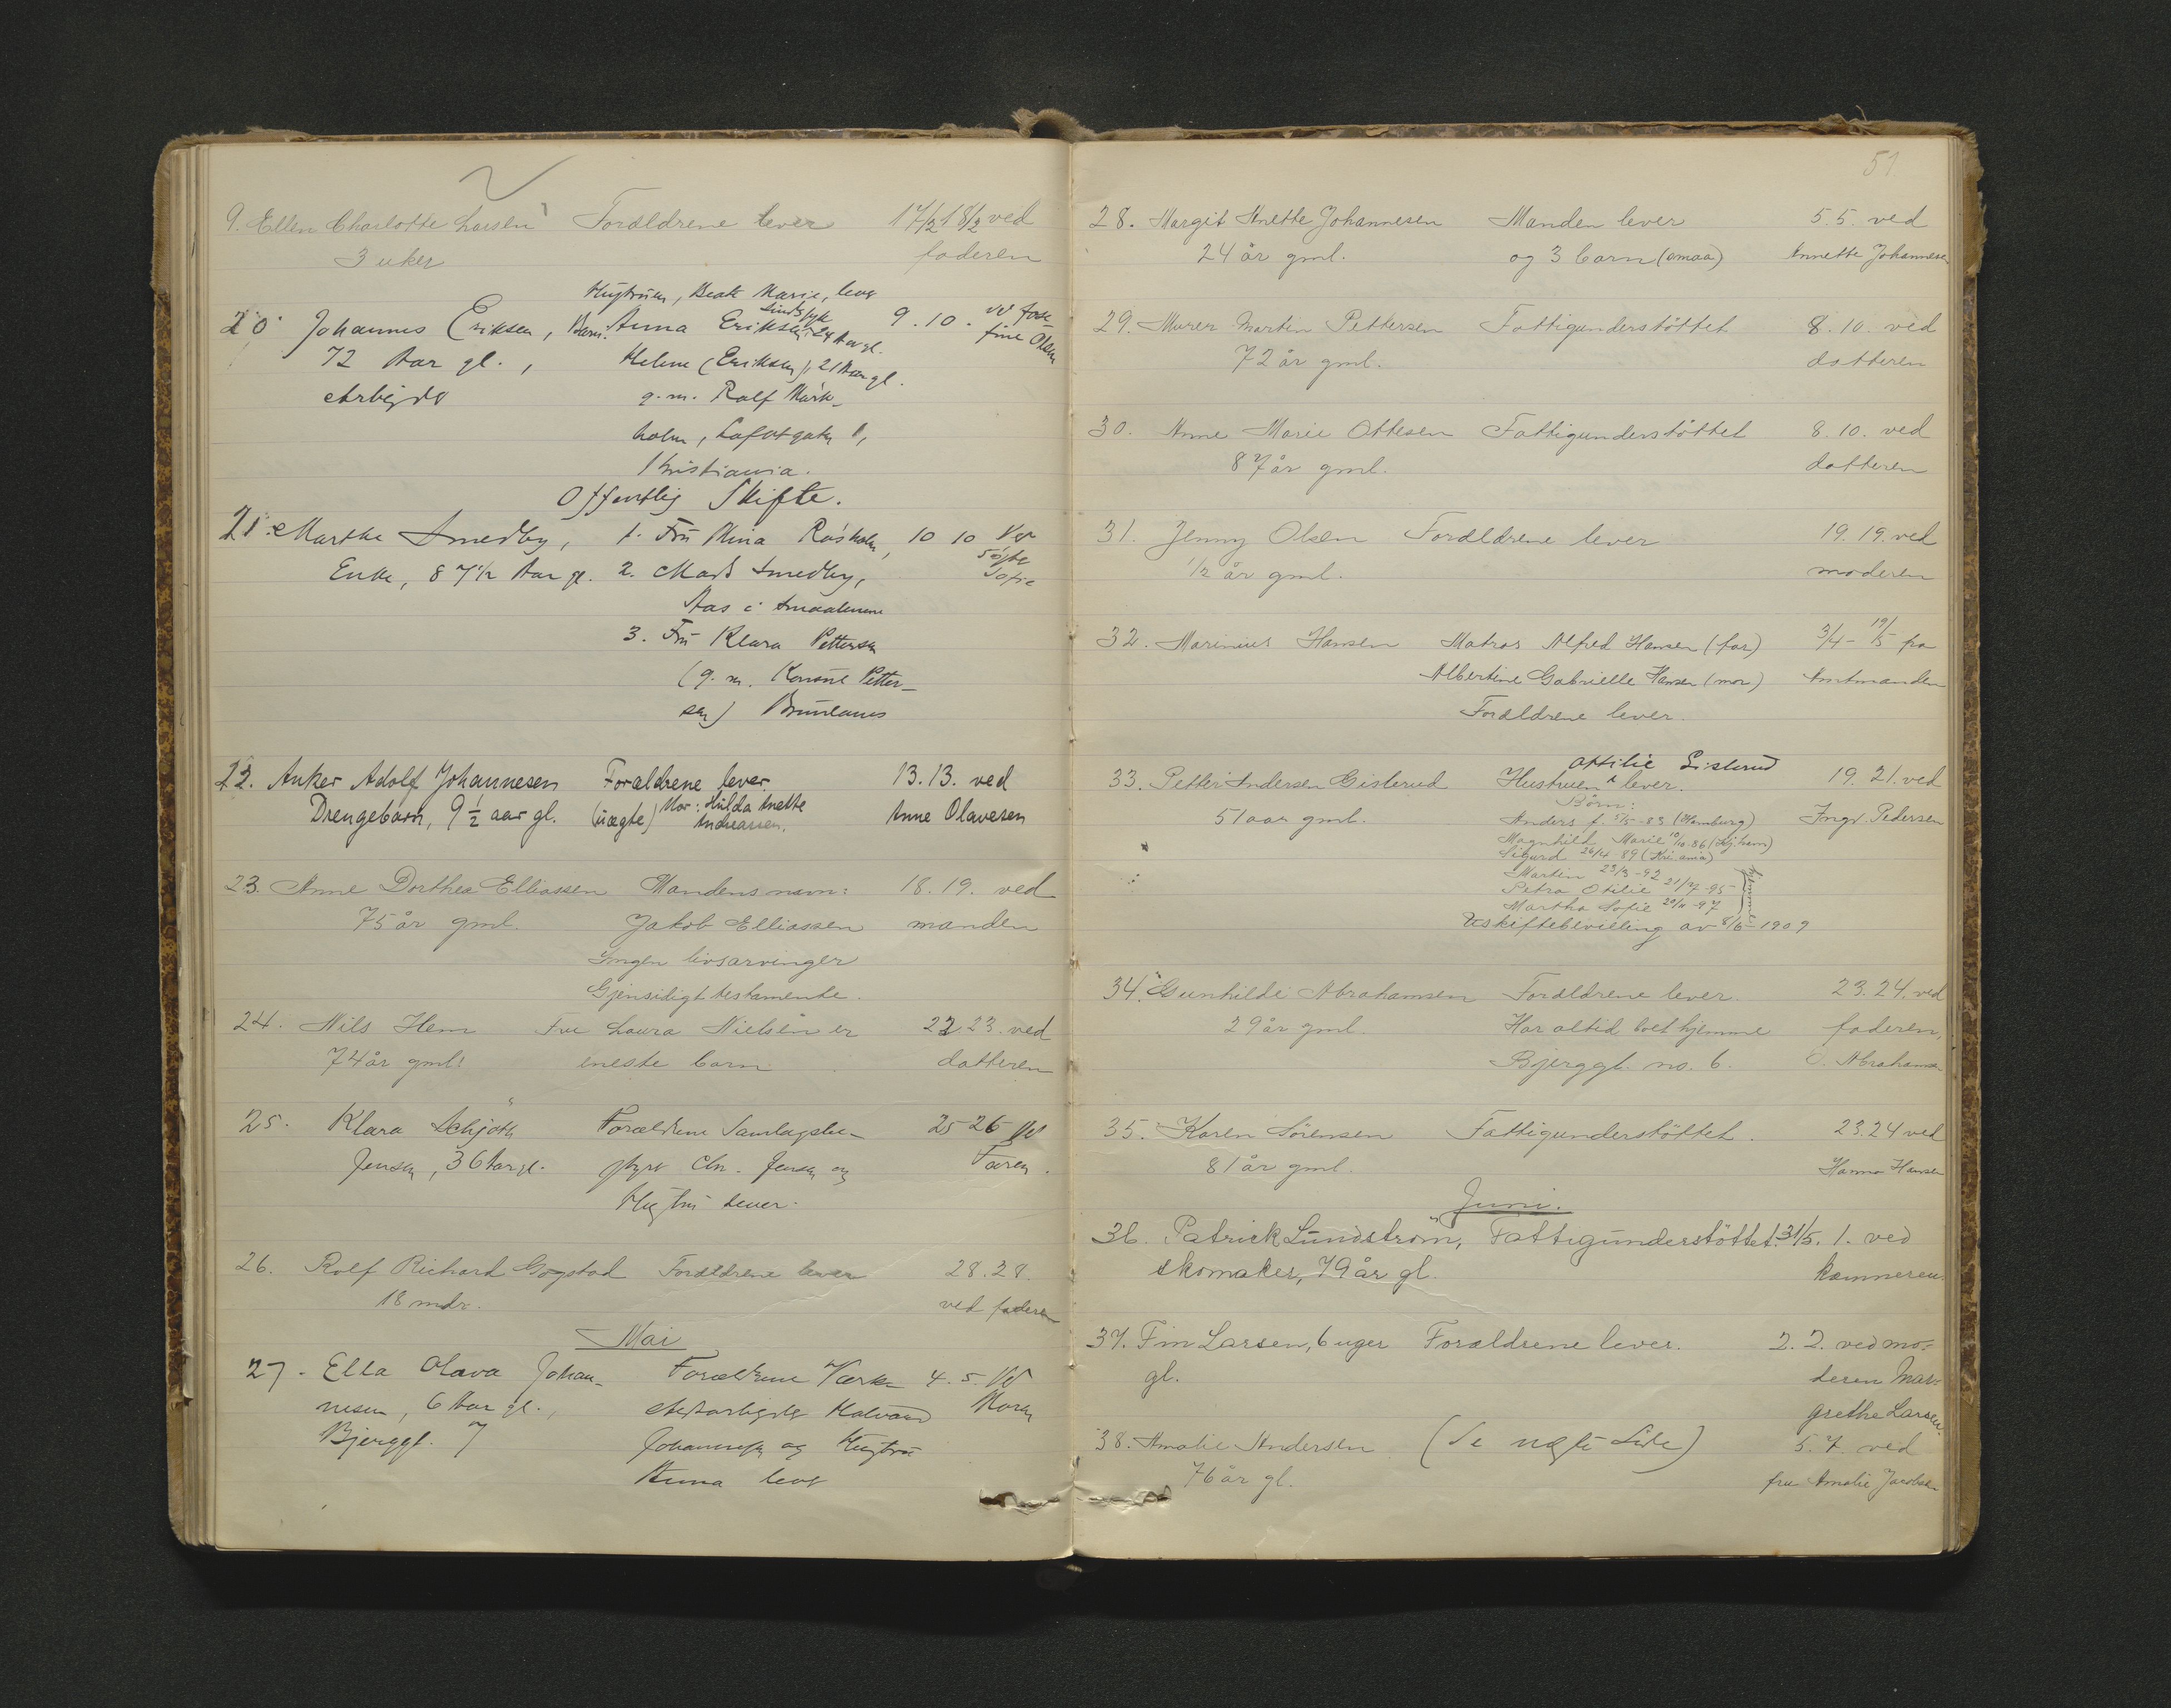 9. Ellen Charlotte Larsen Forældrene lever 17/2 18/2 ved
3 uker faderen
Hustruen, Beate Marie, lever
20 Johannes Eriksen, Barn: Anna Eriksen, 24 Aar gl. 9. 10. ved Jose-
sindssyk
fine Olsen
72 Aar gl., Helene (Eriksen), 21 Aar gl.
Arbejder g. m. Rolf
holm,
Kristiania.
Offentlig Skifte.
21. Marthe Smedby, 1. Fru Mina 10 10 Ved
Enke, 87 1/2 Aar gl. 2. Mads Smedby, Sofie
Aas i Smaalenene
3. Fru Klara Pettersen
(g. m. Petter-
sen) Brunlanes
22. Anker Adolf Johannesen Forældrene lever. 13. 13. ved
Drengebarn, 9 1/2 aar gl. (uægte) Mor: Hulda Anette Anne Olavesen
Andreassen.
23. Anne Dorthea Elliassen Mandens navn: 18. 19. ved
75 år gml. Jakob Elliassen manden
Ingen livsarvinger
Gjensidigt testamente.
24. Nils Hem Fru Laura Nielsen er 22. 23. ved
74 år gml. eneste barn datteren
25. Klara Schjøth Forældrene Samlagsbe- 25 26 Ved
Jensen, 36 Aar gl. styrer Chr. Jensen og Faren.
Hustru lever.
26. Rolf Richard Gogstad Forældrene lever 28. 28.
18 mdr. ved faderen
Mai
27. Ella Olava Johan- Forældrene 4. 5. Ved
nesen, 6 Aar gl., Halvard Moren
Bjerggt. 7 Johannesen og Hustru
Anna lever
51
28. Margit Anette Johannesen Manden lever 5. 5. ved
24 år gml. og 3 barn (smaa) Annette Johannesen
29. Murer Martin Pettersen Fattigunderstöttet 8. 10. ved
72 år gml. datteren
30. Anne Marie Ottesen Fattigunderstöttet 8. 10. ved
87 år gml. datteren
31. Jenny Olsen Forældrene lever 19. 19. ved
1/2 år gml. moderen
32. Marinius Hansen Matros Alfred Hansen (far) 3/4 - 19/5 fra
Albertine Gabrielle Hansen (mor) Amtmanden
Forældrene lever.
Ottilie Gisterud
33. Petter Andersen Gisterud Hustruen ^ lever. 19. 21. ved
Börn:
51 aar gml. Anders f. 5/5-83 (Hamburg) Ingv. Pedersen
Magnhild Marie 10/10-86
Sigurd 26/4 89 (Kri.ania)
Martin 23/3-92
Petra Otilie 21/7-95
Martha Sofie 20/11-97
Uskiftebevilling av 8/6-1909
34. Gunhilde Abrahamsen Forældrene lever. 23. 24. ved
29 år gml. Har altid boet hjemme faderen,
Bjerggt. no. 6. O. Abrahamsen
35. Karen Sörensen Fattigunderstöttet. 23. 24 ved
81 år gml. Hanna Hansen
Juni.
36. Patrick Lundström, Fattigunderstöttet. 31/5. 1. ved
skomaker, 79 år gl. kæmneren.
37. Fin Larsen, 6 uger Forældrene lever. 2. 2. ved mo-
gl. deren Mar-
grethe Larsen.
38. Amalie Andersen (Se næste Side) 5. 7. ved
76 år gl. fru Amalie Jacobsen